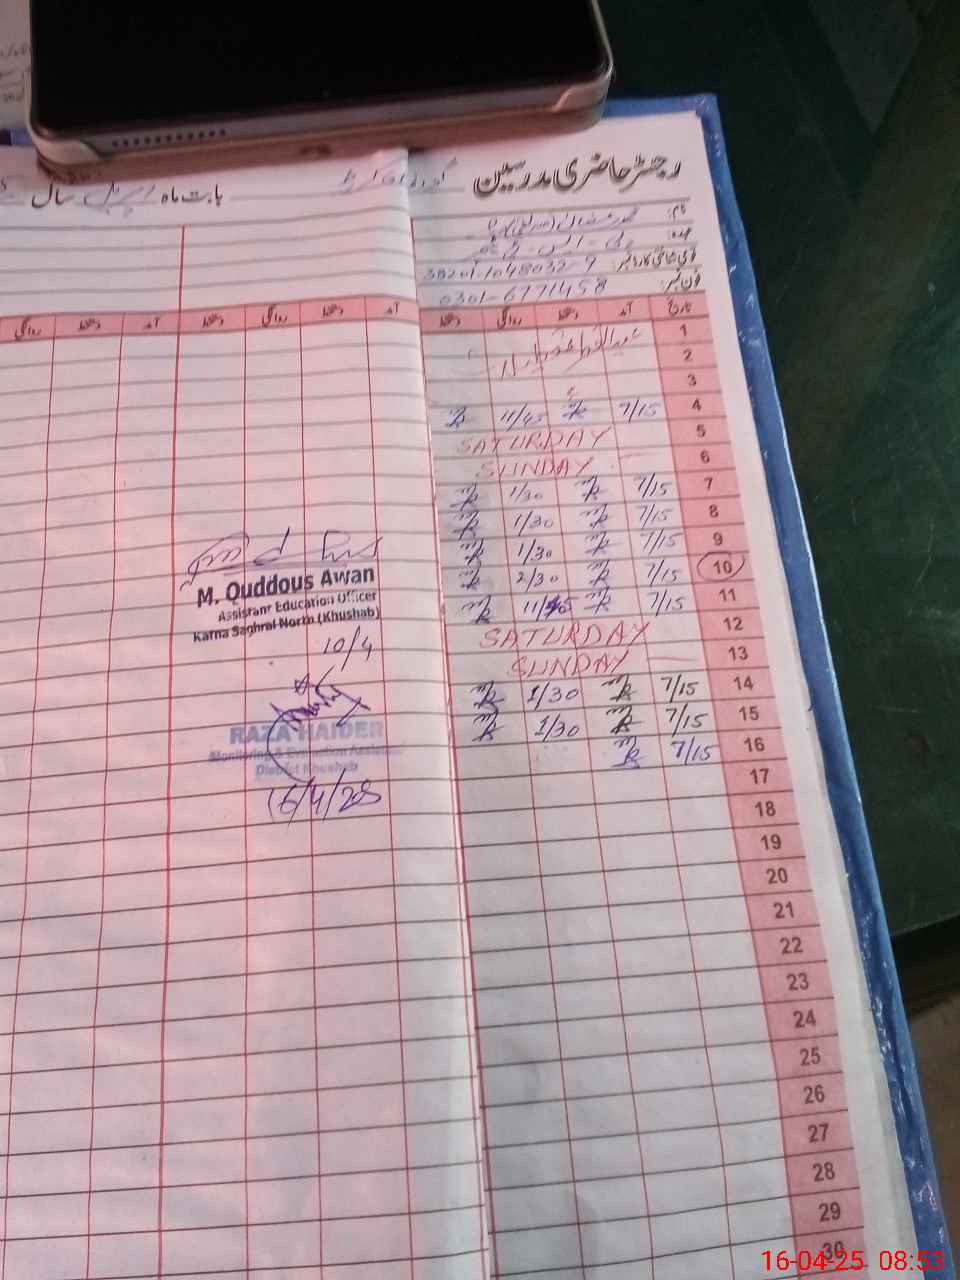 رجسٹر حاضری مدرسین
بابت ماہ اپریل سال
نام:
عہدہ:
قومی شناختی کارڈ نمبر: 38201-1048032-9
فون نمبر: 0301-6771458
تاریخ آمد دستخط روانگی دستخط آمد دستخط روانگی دستخط آمد دستخط روانگی
1
2
3
4 7/15 11/45
5 SATURDAY
6 SUNDAY
7 7/15 1/30
8 7/15 1/30
9 7/15 1/30
10 7/15 2/30
11 7/15 11/45
12 SATURDAY
13 SUNDAY
14 7/15 1/30
15 7/15 1/30
16 7/15
17
18
19
20
21
22
23
24
25
26
27
28
29
30
M. Quddous Awan
Assistant Education Officer
Karna Saghral North (Khushab)
10/4
RAZA HAIDER
Monitoring & Evaluation Assistant
District Khushab
16/4/25
16-04-25 08:53